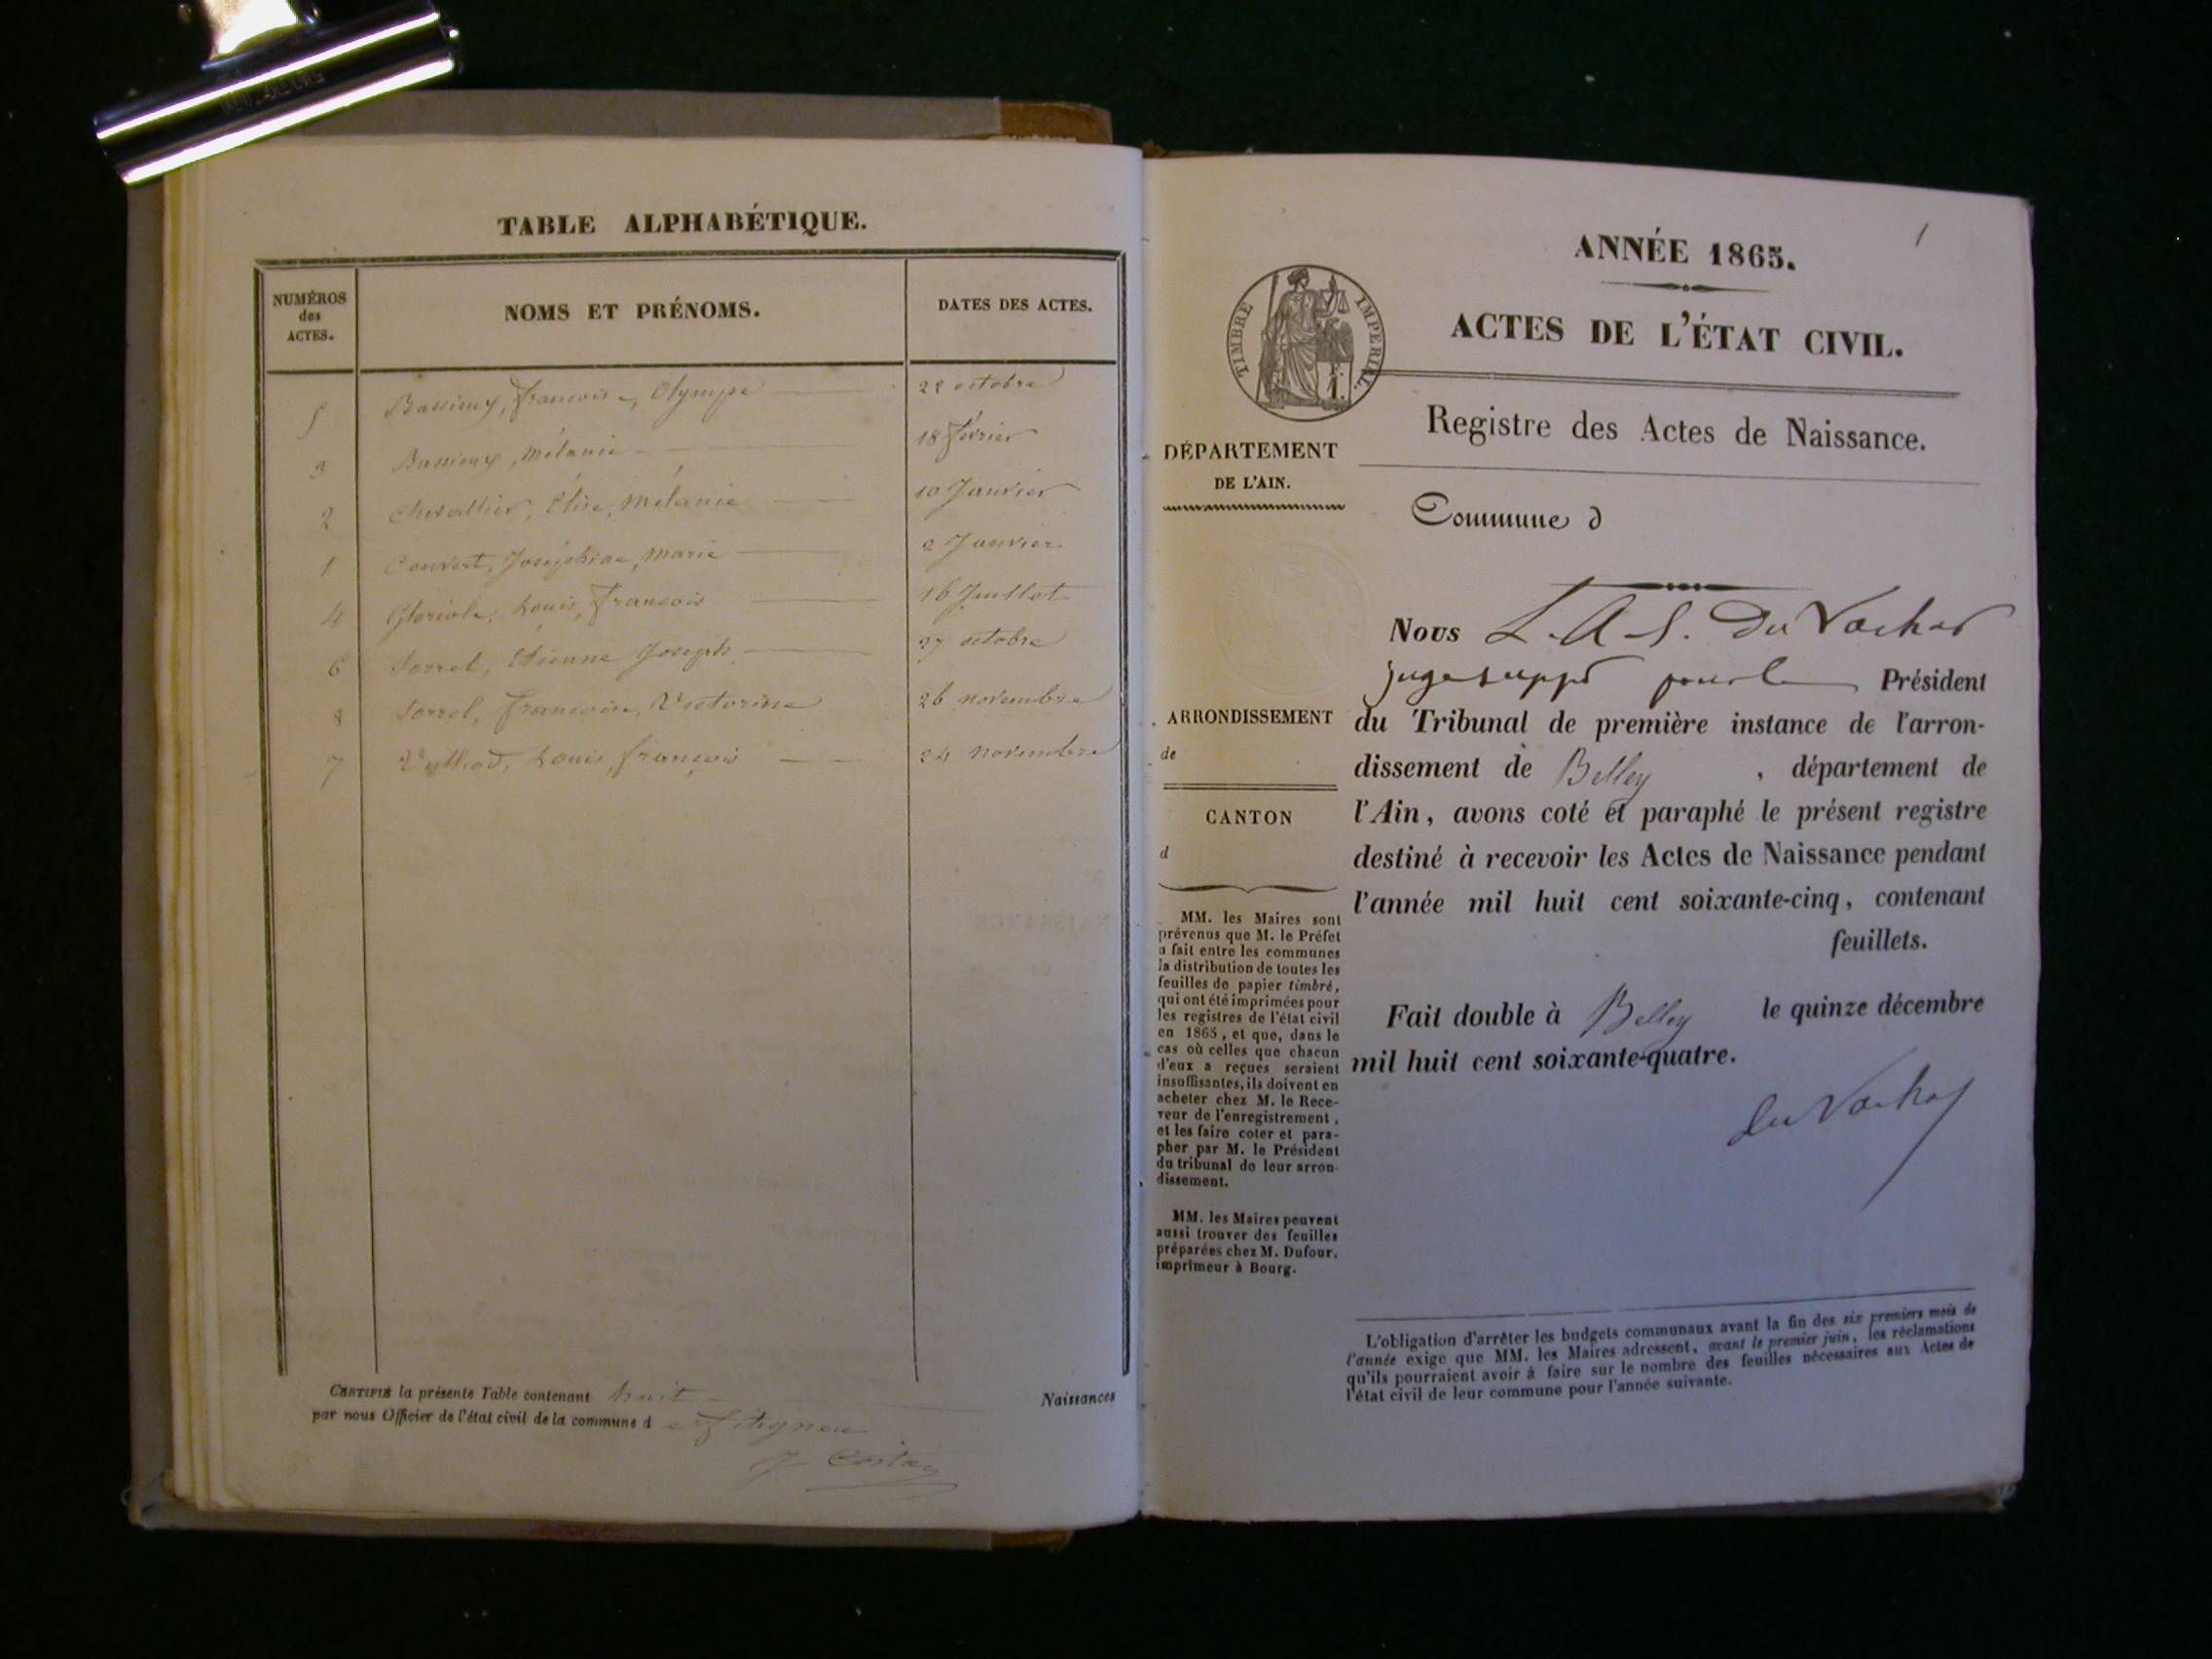 TABLE ALPHABÉTIQUE.
NUMÉROS
des
ACTES.
NOMS ET PRÉNOMS.
DATES DES ACTES.
5 Bassieux, françoise, Olympe 22 octobre
3 Bassieux, mélanie 18 février
2 Chevallier, Élise, mélanie 10 Janvier
1 Convert, Joséphine, marie 2 Janvier
4 Louis, françois 16 Juillet
6 Sorrel, Étienne Joseph 27 octobre
8 Sorrel, françoise, Victorine 26 novembre
7 Louis, françois 24 novembre
CERTIFIÉ la présente Table contenant huit Naissances
par nous Officier de l'état civil de la commune d e fitignieu
1
ANNÉE 1865.
ACTES DE L'ÉTAT CIVIL.
TIMBRE IMPERIAL.
1.
Registre des Actes de Naissance.
DÉPARTEMENT
DE L'AIN.
Commune d
Nous L. A. S. Du Vachat
juge suppt pour le Président
ARRONDISSEMENT
de
du Tribunal de première instance de l'arron-
dissement de Belley , département de
l'Ain, avons coté et paraphé le présent registre
destiné à recevoir les Actes de Naissance pendant
l'année mil huit cent soixante-cinq, contenant
feuillets.
CANTON
d
MM. les Maires sont
prévenus que M. le Préfet
a fait entre les communes
la distribution de toutes les
feuilles de papier timbré,
qui ont été imprimées pour
les registres de l'état civil
en 1865, et que, dans le
cas où celles que chacun
d'eux a reçues seraient
insuffisantes, ils doivent en
acheter chez M. le Rece-
veur de l'enregistrement,
et les faire coter et para-
pher par M. le Président
du tribunal de leur arron-
dissement.
MM. les Maires peuvent
aussi trouver des feuilles
préparées chez M. Dufour,
imprimeur à Bourg.
Fait double à Belley le quinze décembre
mil huit cent soixante-quatre.
du Vachat
L'obligation d'arrêter les budgets communaux avant la fin des six premiers mois de
l'année exige que MM. les Maires adressent, avant le premier juin, les réclamations
qu'ils pourraient avoir à faire sur le nombre des feuilles nécessaires aux Actes de
l'état civil de leur commune pour l'année suivante.